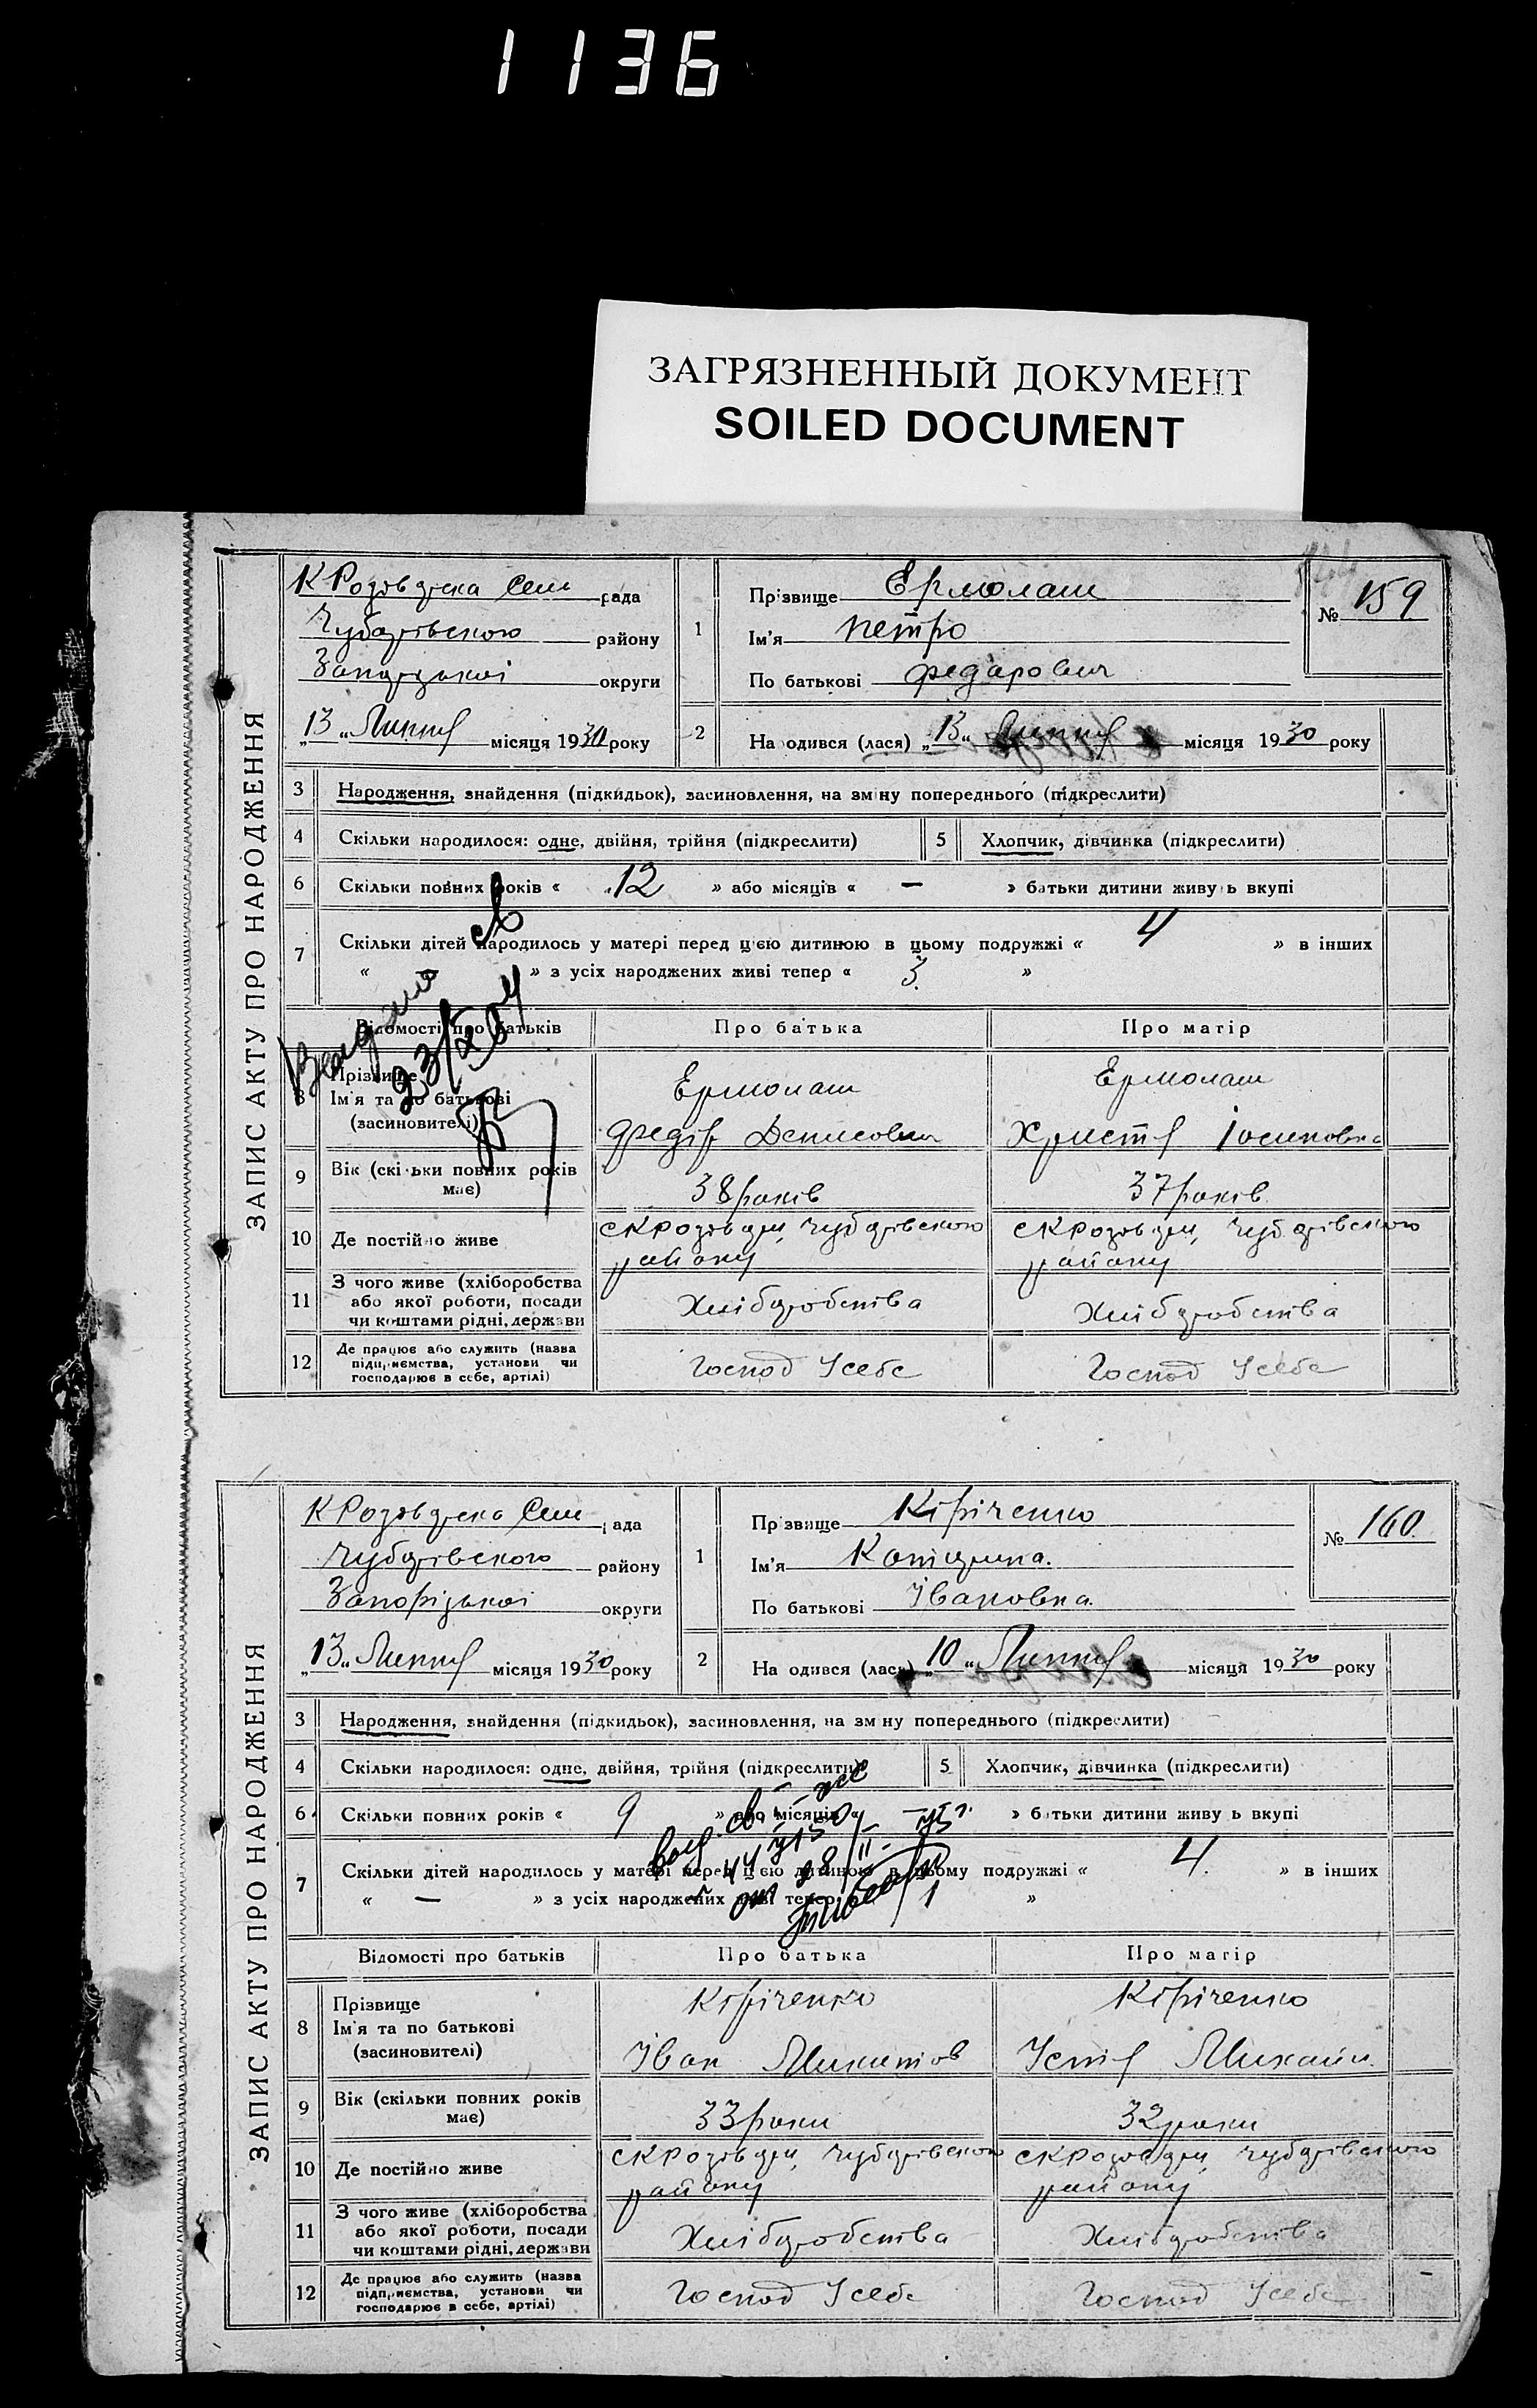 1136
ЗАГРЯЗНЕННЫЙ ДОКУМЕНТ
SOILED DOCUMENT
ЗАПИС АКТУ ПРО НАРОДЖЕННЯ
К Розіворска Сель рада
Чубарівського району
Запорізькоі округи
„13„ Липня місяця 1930 року
1
Прізвище Ермолаш
Ім'я Петро
По батькові Федарович
№ 159
2
Народився (лася) „13„ Липня місяця 1930 року
3 Народження, знайдення (підкидьок), засиновлення, на зміну попереднього (підкреслити)
4 Скільки народилося: одне, двійня, трійня (підкреслити) 5 Хлопчик, дівчинка (підкреслити)
6 Скільки повних років « 12 » або місяців « — » батьки дитини живуть вкупі
7 Скільки дітей народилось у матері перед цією дитиною в цьому подружжі « 4 » в інших
« » з усіх народжених живі тепер « 3 »
Відомості про батьків Про батька Про матір
8 Прізвище
Ім'я та по батькові
(засиновителі)
Ермолаш
Федір Денисович
Ермолаш
Христя Іосиповна
9 Вік (скільки повних років має) 38 років 37 років
10 Де постійно живе
с К Розівори, Чубарівського району
с К Розівори, Чубарівського району
11 З чого живе (хліборобства
або якої роботи, посади
чи коштами рідні, держави
Хліборобства Хліборобства
12 Де працює або служить (назва
підприємства, установи чи
господарює в себе, артілі)
Господ Усебе Господ Усебе
ЗАПИС АКТУ ПРО НАРОДЖЕННЯ
К Розіворска Сель рада
Чубарівського району
Запорізькоі округи
„13„ Липня місяця 1930 року
1
Прізвище Кіріченко
Ім'я Катирина.
По батькові Івановна.
№ 160.
2
Народився (лася) „10„ Липня місяця 1930 року
3 Народження, знайдення (підкидьок), засиновлення, на зміну попереднього (підкреслити)
4 Скільки народилося: одне, двійня, трійня (підкреслити) 5 Хлопчик, дівчинка (підкреслити)
6 Скільки повних років « 9 » або місяців « » батьки дитини живуть вкупі
7 Скільки дітей народилось у матері перед цією дитиною в цьому подружжі « 4. » в інших
« — » з усіх народжених живі тепер « 1 »
Відомості про батьків Про батька Про матір
8 Прізвище
Ім'я та по батькові
(засиновителі)
Кіріченко
Іван Микитов
Кіріченко
Устія Михайл.
9 Вік (скільки повних років має) 33 роки 32 роки
10 Де постійно живе
с К Розівори, Чубарівського району
с К Розівори, Чубарівського району
11 З чого живе (хліборобства
або якої роботи, посади
чи коштами рідні, держави
Хліборобства Хліборобства
12 Де працює або служить (назва
підприємства, установи чи
господарює в себе, артілі)
Господ Усебе Господ Усебе